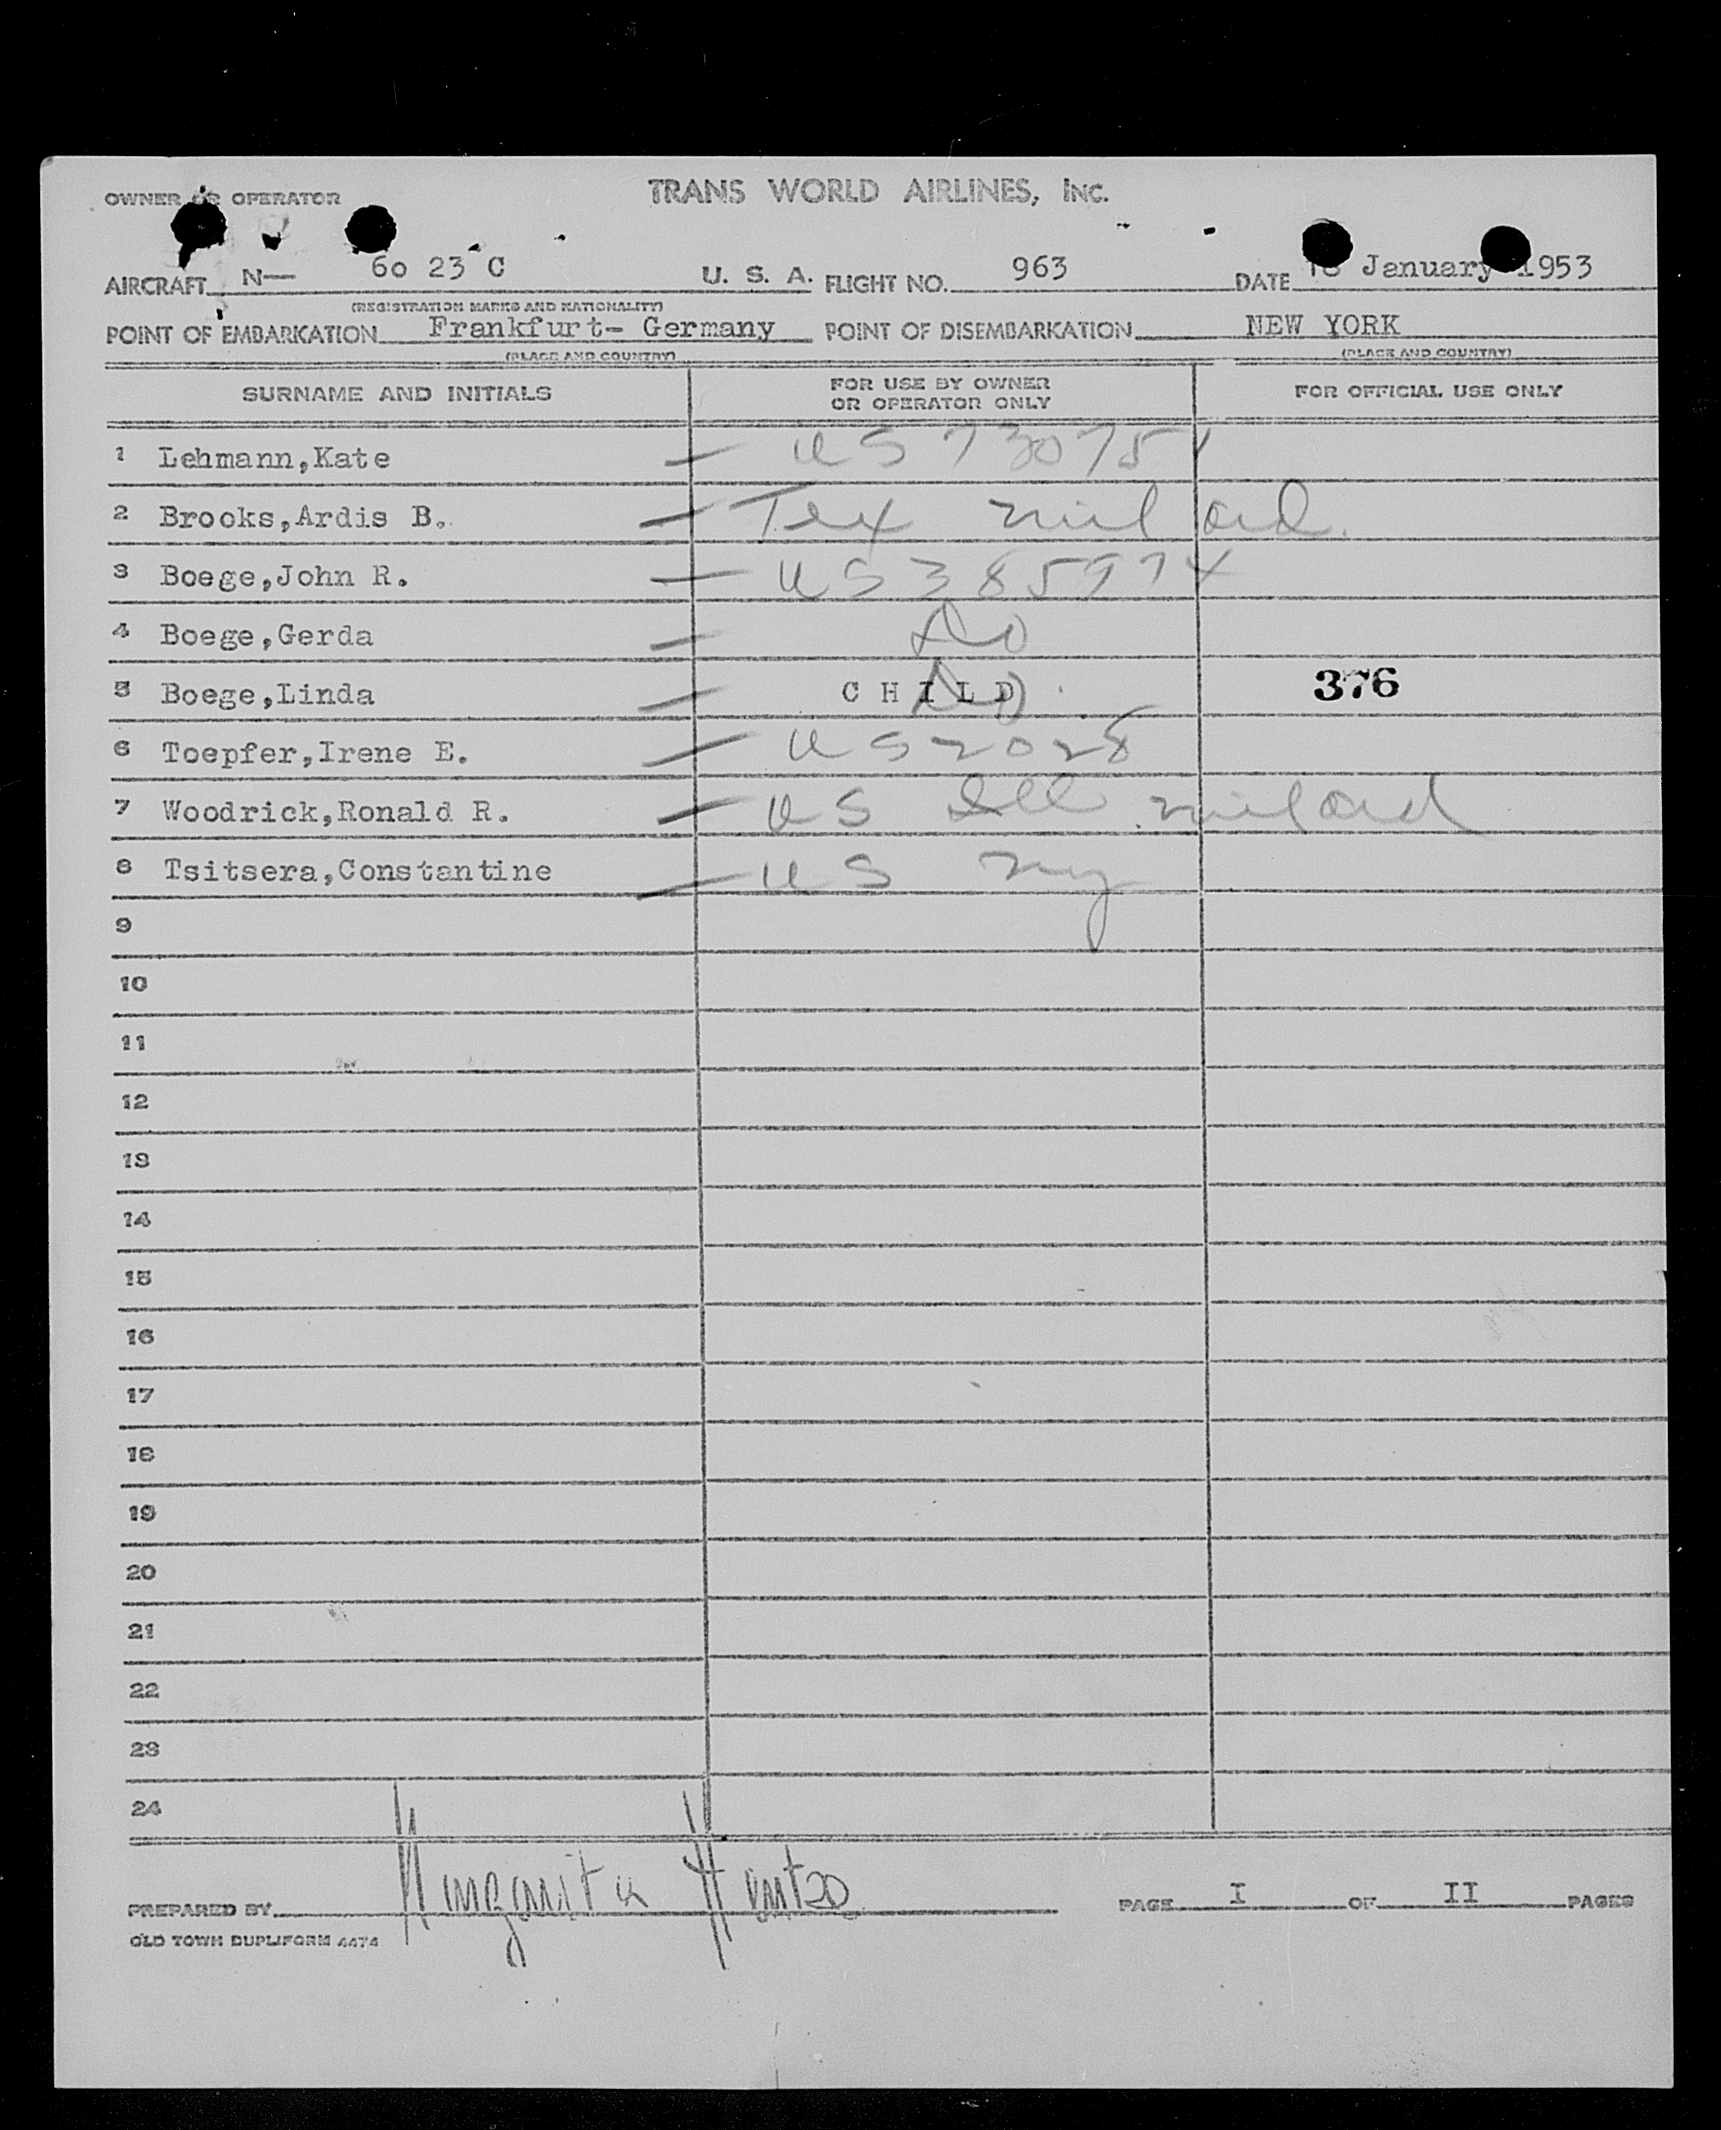 OWNER OR OPERATOR TRANS WORLD AIRLINES, INC.
AIRCRAFT N— 60 23 C U. S. A. FLIGHT NO. 963 DATE January 1953
(REGISTRATION MARKS AND NATIONALITY)
POINT OF EMBARKATION Frankfurt- Germany POINT OF DISEMBARKATION NEW YORK
(PLACE AND COUNTRY) (PLACE AND COUNTRY)
SURNAME AND INITIALS FOR USE BY OWNER OR OPERATOR ONLY FOR OFFICIAL USE ONLY
1 Lehmann,Kate — US 730751
2 Brooks,Ardis B. — Tex mil ord.
3 Boege,John R. — US 385974
4 Boege,Gerda — Do
5 Boege,Linda — C H I L D Do 376
6 Toepfer,Irene E. — US 2028
7 Woodrick,Ronald R. — US Ill mil ord
8 Tsitsera,Constantine — US NY
9
10
11
12
13
14
15
16
17
18
19
20
21
22
23
24
PREPARED BY Margarita PAGE I OF II PAGES
OLD TOWN DUPLIFORM 4474